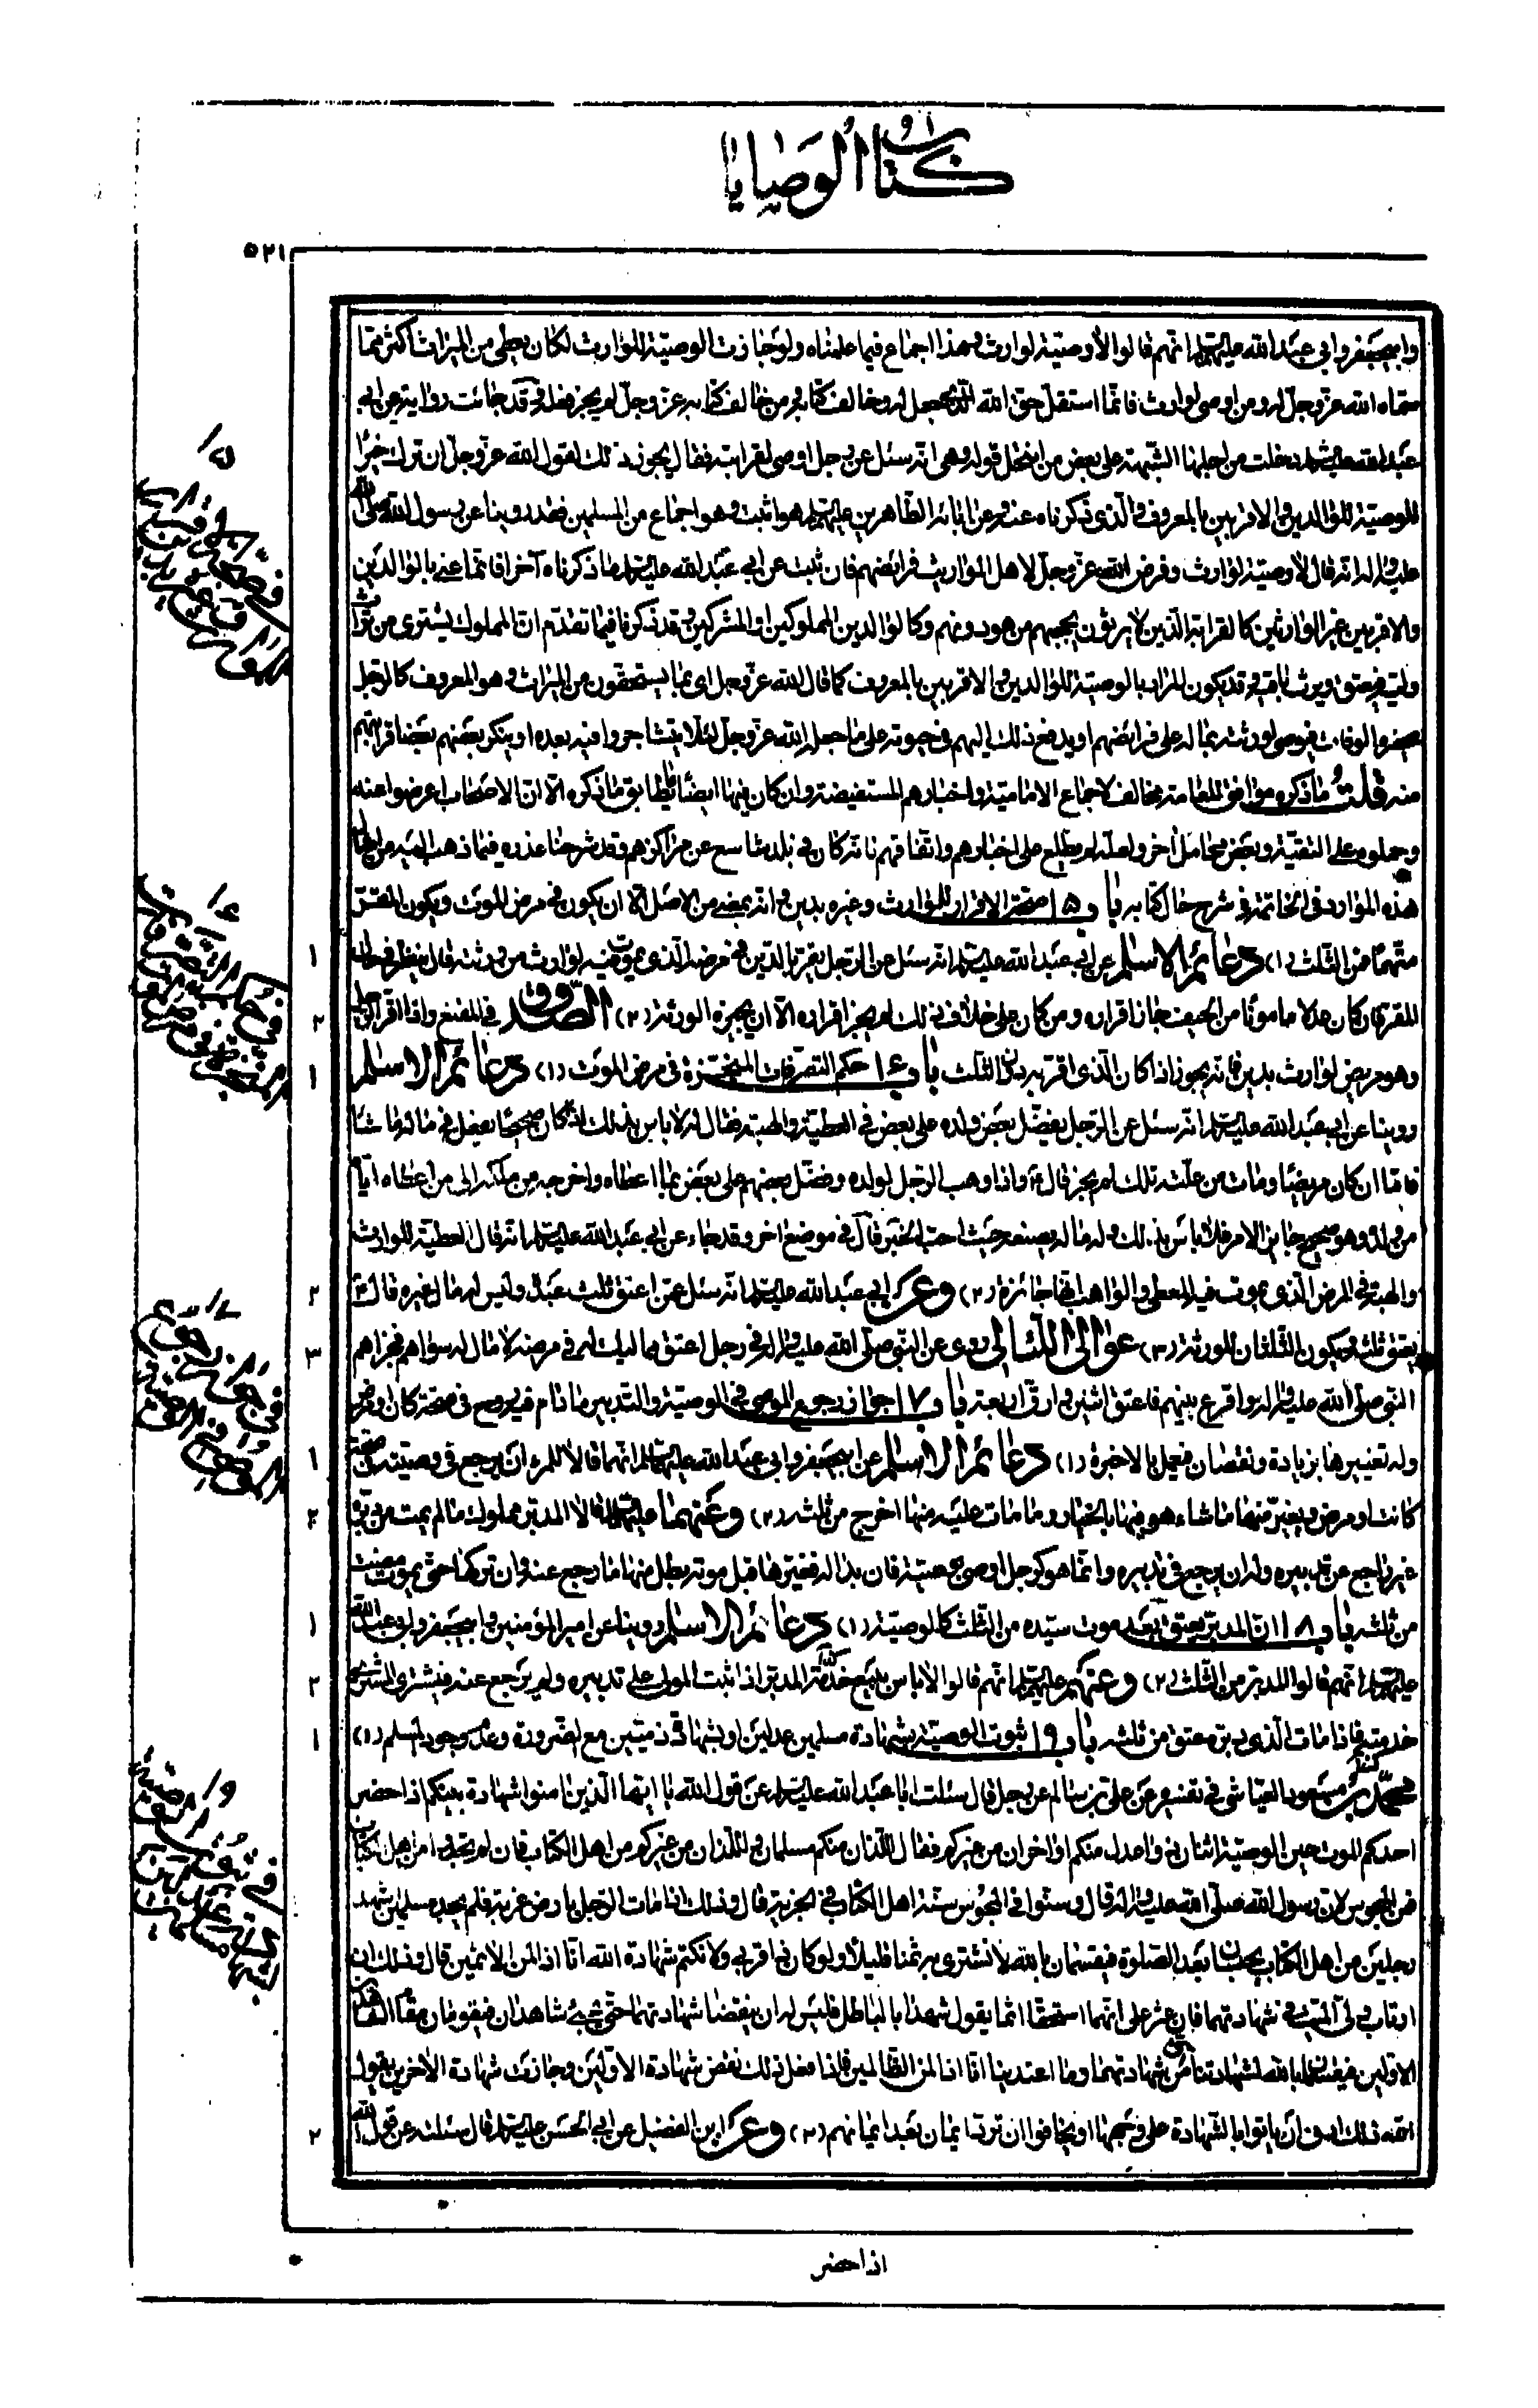 كتاب الوصايا
٥٢١
وابيجعفر وابي عبد الله عليهم السلام انهم قالوا لا وصية لوارث وهذا اجماع فيما علمناه ولو جازت الوصية للوارث لكان يعطى من الميراث اكثر مما
سماه الله عز وجل له ومن اوصى لوارث فانما استقل حق الله الذي جعل له وخالف كتابه ومن خالف كتابه عز وجل لم يجز فعله وقد جائت رواية عن ابي
عبد الله عليه السلام دخلت من اجلها الشبهة على بعض من انتحل قوله وهي انه سئل عن رجل اوصى لقرابته فقال يجوز ذلك لقول الله عز وجل ان ترك خيرا
الوصية للوالدين والاقربين بالمعروف والذي ذكرناه عنه وعن ابائه الطاهرين عليهم السلام هو اثبت وهو اجماع من المسلمين فقد روينا عن رسول الله صلى الله
عليه واله انه قال لا وصية لوارث وفرض الله عز وجل لاهل المواريث فرائضهم فان ثبت عن ابي عبد الله عليه السلام ما ذكرناه آخرا فانما عنى بالوالدين
والاقربين غير الوارثين كالقرابة الذين لا يرثون يحجبهم من هو دونهم وكالوالدين المملوكين او المشركين وقد ذكرنا فيما تقدم ان المملوك يشترى من تراث
وليه فيعتق ويرث باقيه وقد يكون المراد بالوصية للوالدين والاقربين بالمعروف كما قال الله عز وجل اى بما يستحقون من الميراث وهو المعروف كالرجل
يحضره الوفات فيوصى لورثته بماله على فرائضهم او يدفع ذلك اليهم في حيوته على ما جعله الله عز وجل لئلا يتشاجروا فيه بعده او ينكر بعضهم بعضا قرابتهم
منه قلت ما ذكره موافق للعامة مخالف لاجماع الامامية واخبارهم المستفيضة وان كان فيها ايضا ما يطابق ما ذكره الا ان الاصحاب اعرضوا عنه
وحملوه على التقية وبعض محامل أخر ولعله لم يطلع على اخبارهم واتفاقهم فانه كان في بلد شاسع عن مراكزهم وقد شرحنا عذره فيما ذهب اليه من امثال
هذه الموارد في الخاتمة في شرح حال كتابه باب ١٥ صحة الاقرار للوارث وغيره بدين وانه يمضى من الاصل الا ان يكون في مرض الموت ويكون المقر
متهما فمن الثلث (١) دعائم الاسلام عن ابي عبد الله عليه السلام انه سئل عن الرجل يقر بالدين في مرضه الذي يموت فيه لوارث من ورثته قال ينظر في حال
المقر فان كان عدلا مامونا من الحيف جاز اقراره ومن كان على خلاف ذلك لم يجز اقراره الا ان يجيزه الورثة (٢) الصدوق في المقنع واذا اقر الرجل
وهو مريض لوارث بدين فانه يجوز اذا كان الذي اقر به دون الثلث باب ١٦ حكم التصرفات المنجزة في مرض الموت (١) دعائم الاسلام
روينا عن ابي عبد الله عليه السلام انه سئل عن الرجل يفضل بعض ولده على بعض في العطية والهبة فقال لا باس بذلك اذا كان صحيحا يفعل في ماله ما شاء
فاما ان كان مريضا ومات من علته تلك لم يجز قال واذا وهب الرجل لولده وفضل بعضهم على بعض بما اعطاه واخرجه من ملكه الى من اعطاه اياه
من ولده وهو صحيح جايز الامر فلا باس بذلك وله ماله يصنعه حيث احب الخبر قال في موضع اخر وقد جاء عن ابي عبد الله عليه السلام انه قال العطية للوارث
والهبة في المرض الذي يموت فيه المعطى والواهب انها جائزة (٢) وعن ابي عبد الله عليه السلام انه سئل عمن اعتق ثلث عبده وليس له مال غيره قال
يعتق ثلثه ويكون الثلثان للورثة (٣) عوالى اللئالى روى عن النبي صلى الله عليه واله في رجل اعتق مماليك له في مرضه لا مال له سواهم فجزاهم
النبي صلى الله عليه واله واقرع بينهم فاعتق اثنين وارق اربعة باب ١٧ جواز رجوع الموصى في الوصية والتدبير ما دام فيه روح في صحة كان او مرض
وله تغييرها بزيادة ونقصان فيعمل بالاخيرة (١) دعائم الاسلام عن ابيجعفر وابي عبد الله عليهما السلام انهما قالا للمرء ان يرجع في وصيته في صحة
كانت او مرض ويغير منها ما شاء هو فيها بالخيار وما مات عليه منها اخرج من ثلثه (٢) وعنهما عليهما السلام قالا المدبر مملوك ما لم يمت من دبره
غير راجع عن تدبيره وله ان يرجع في تدبيره وانما هو كرجل اوصى بوصية فان بدا له فغيرها قبل موته بطل منها ما رجع عنه وان تركها حتى يموت مضت
من ثلثه باب ١٨ ان المدبر يعتق بعد موت سيده من الثلث كالوصية (١) دعائم الاسلام روينا عن امير المؤمنين وابيجعفر وابي عبد الله
عليهم السلام انهم قالوا المدبر من الثلث (٢) وعنهم عليهم السلام انهم قالوا لا باس ببيع خدمة المدبر اذا ثبت المولى على تدبيره ولم يرجع عنه فيشترى المشترى
خدمته فاذا مات الذي دبره عتق من ثلثه باب ١٩ ثبوت الوصية بشهادة مسلمين عدلين او بشهادة ذميين مع الضرورة وعدم وجود المسلم (١)
محمد بن مسعود العياشى في تفسيره عن على بن سالم عن رجل قال سئلت ابا عبد الله عليه السلام عن قول الله يا ايها الذين امنوا شهادة بينكم اذا حضر
احدكم الموت حين الوصية اثنان ذوا عدل منكم او اخران من غيركم فقال اللذان منكم مسلمان واللذان من غيركم من اهل الكتاب فان لم يجدوا من اهل الكتاب
فمن المجوس لان رسول الله صلى الله عليه واله قال وسنوا في المجوس سنة اهل الكتاب في الجزية قال وذلك اذا مات الرجل بارض غربة فلم يجد مسلمين يشهد
رجلين من اهل الكتاب يحبسان بعد الصلوة فيقسمان بالله لا نشترى به ثمنا قليلا ولو كان ذا قربى ولا نكتم شهادة الله انا اذا لمن الاثمين قال وذلك ان
ارتاب ولى الميت في شهادتهما فان عثر على انهما استحقا اثما يقول شهدا بالباطل فليس له ان ينقض شهادتهما حتى يجئ شاهدان فيقومان مقام الشاهدين
الاولين فيقسمان بالله لشهادتنا احق من شهادتهما وما اعتدينا انا اذا لمن الظالمين فاذا فعل ذلك نقض شهادة الاولين وجازت شهادة الاخرين يقول
الله ذلك ادنى ان ياتوا بالشهادة على وجهها او يخافوا ان ترد ايمان بعد ايمانهم (٢) وعن ابن الفضيل عن ابي الحسن عليه السلام قال سئلته عن قول الله
اذا حضر